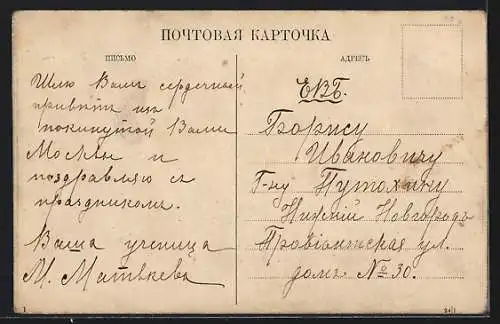 ПОЧТОВАЯ КАРТОЧКА
ПИСЬМО
Шлю Вамъ сердечный
привѣтъ изъ
покинутой Вами
Москвы и
поздравляю съ
праздникомъ.
Ваша ученица
М. Матвѣева
АДРЕСЪ
ЕВБ.
Борису
Ивановичу
Г-ну Путохину
Нижній Новгородъ
Провіантская ул.
домъ № 30.